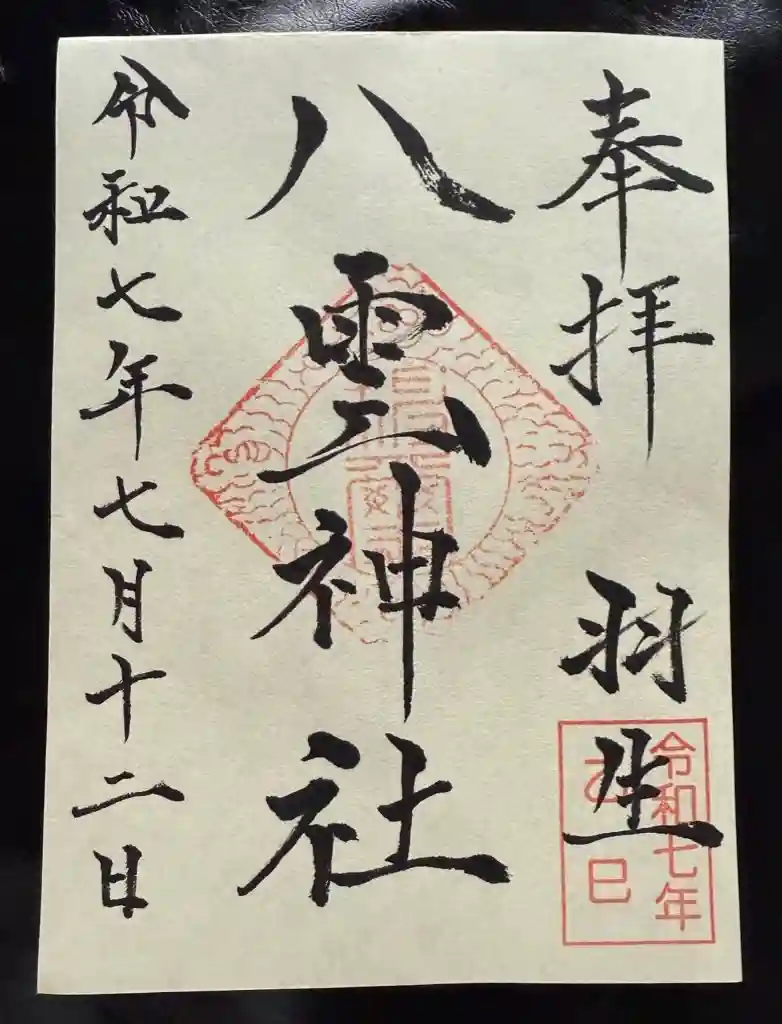 奉拝 羽生
令和七年
乙巳
八雲神社
令和七年七月十二日